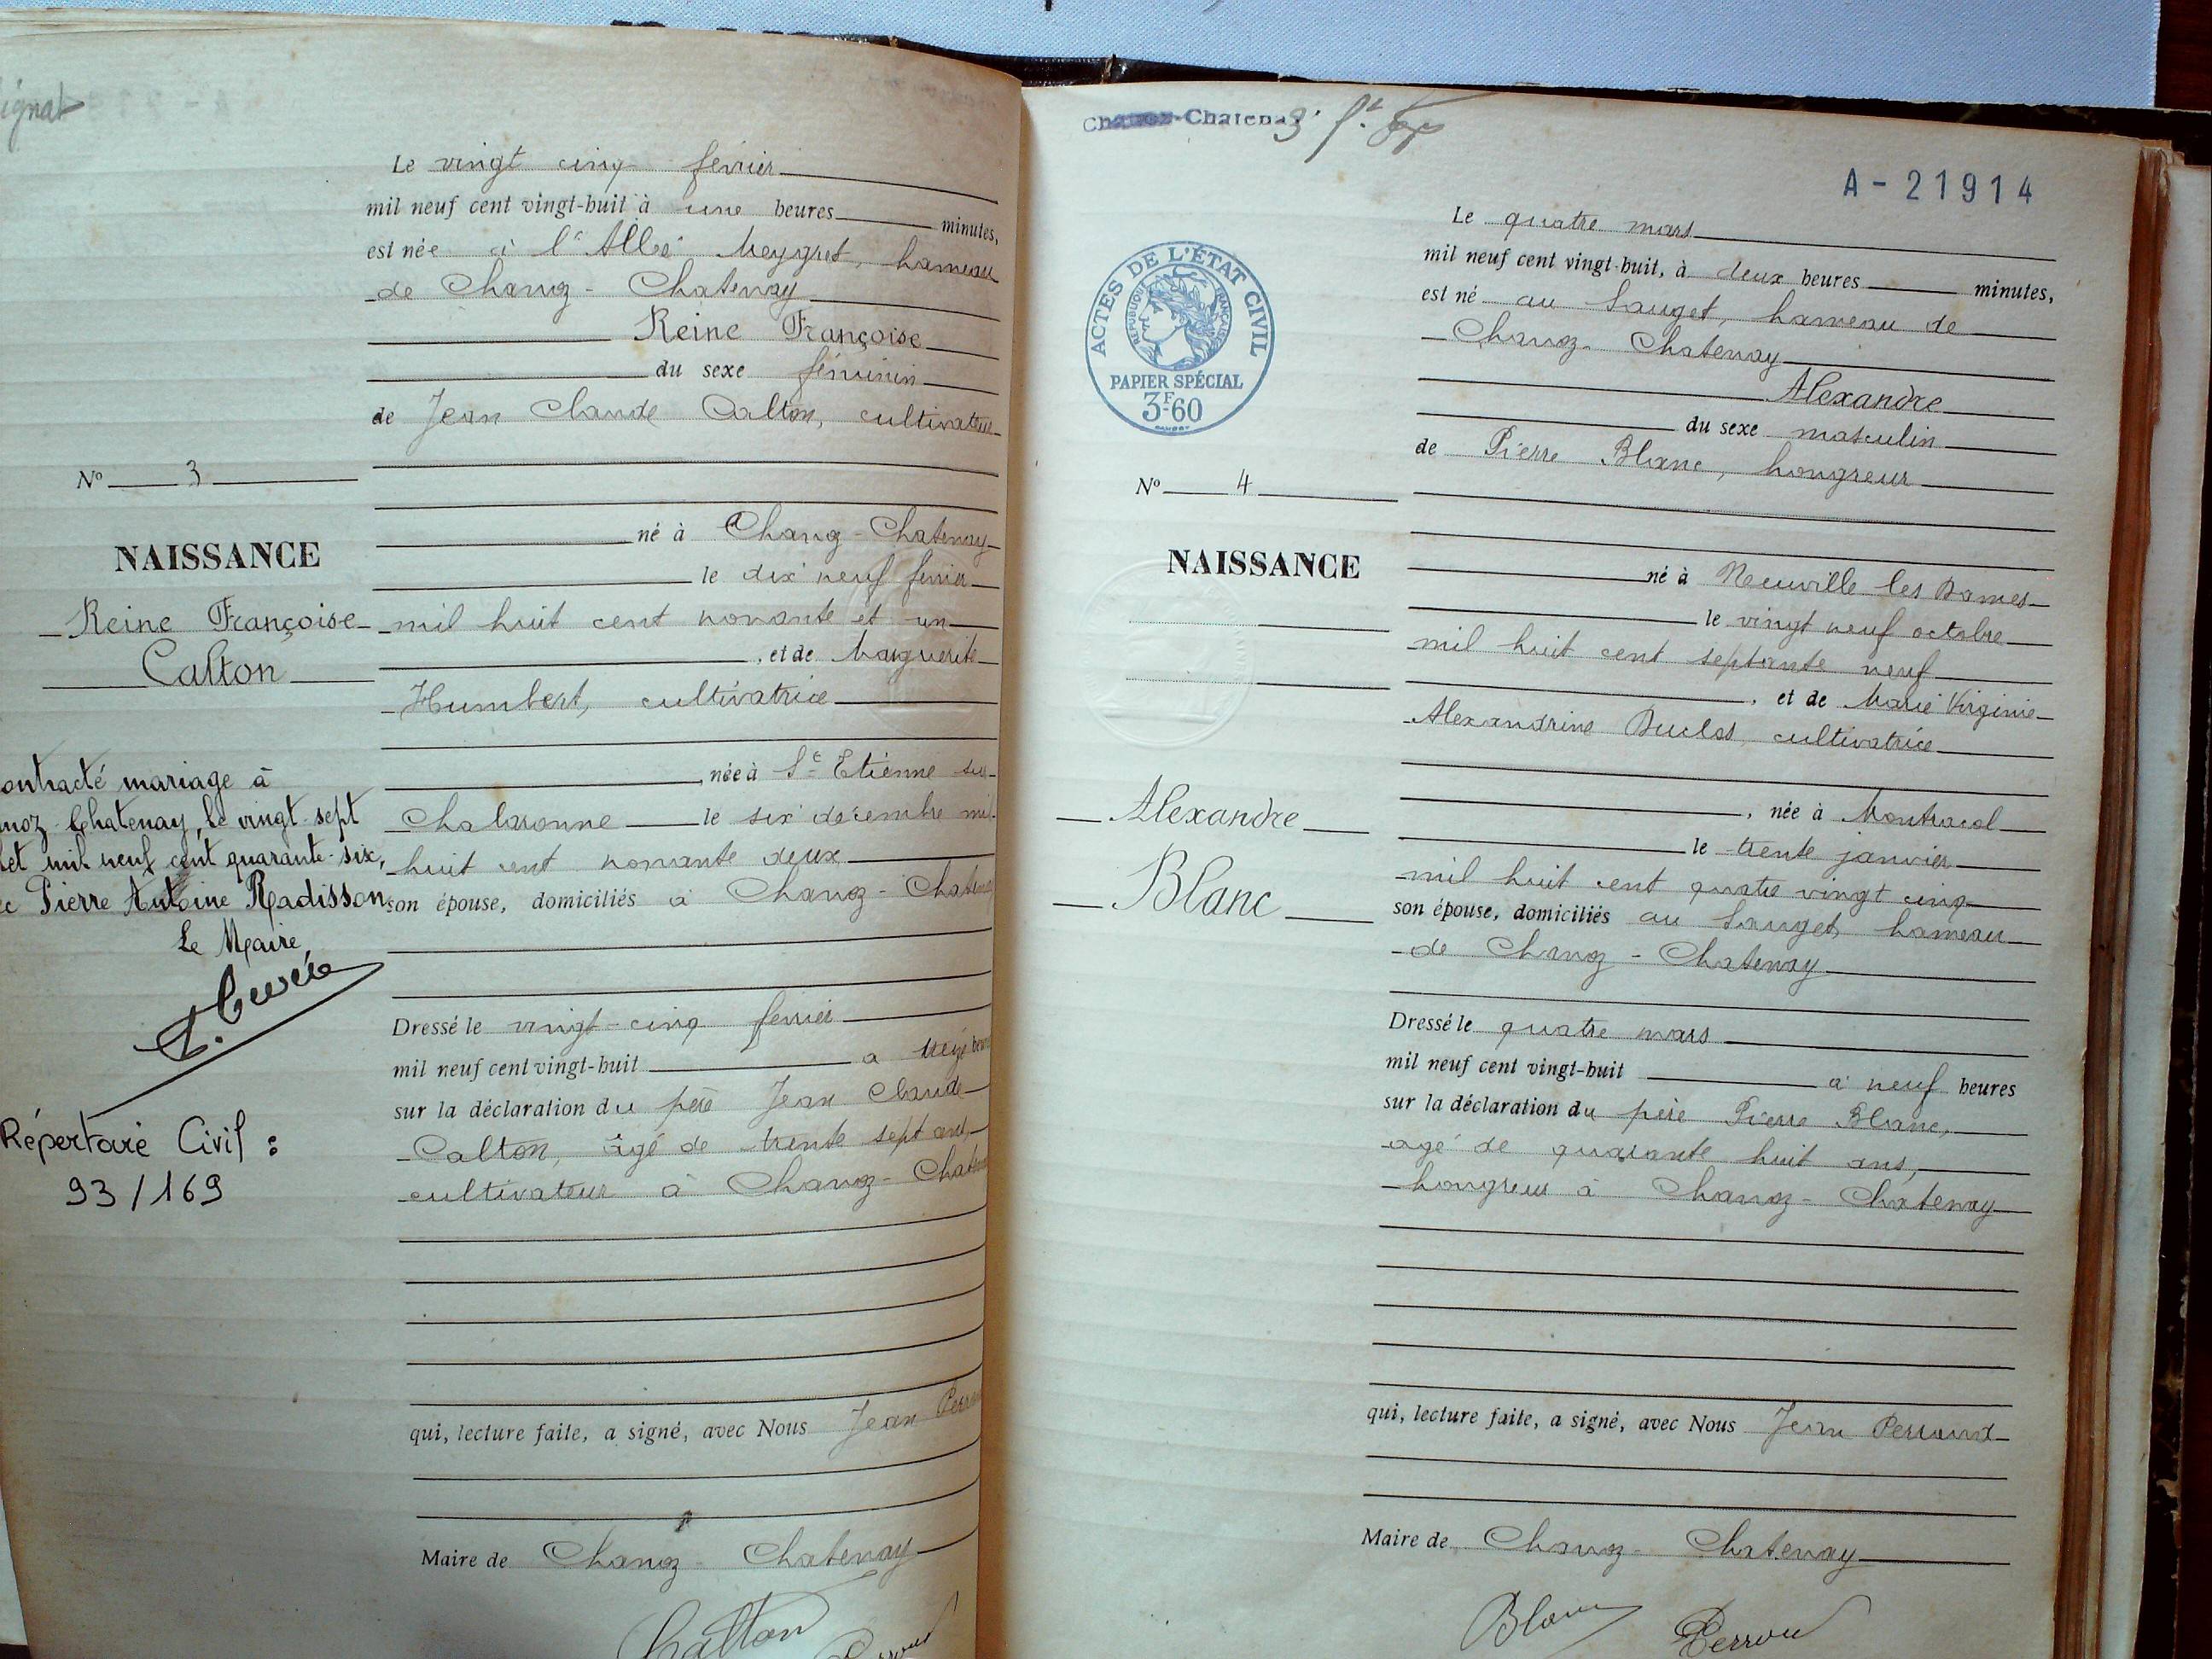 Le vingt cinq février
mil neuf cent vingt-huit à une heures minutes,
est née à l'Allée Meygret, hameau
de Chanoz-Chatenay
Reine Françoise
du sexe féminin
de Jean Claude Calton, cultivateur
né à Chanoz-Chatenay
le dix neuf février
mil huit cent nonante et un
, et de Marguerite
Humbert, cultivatrice
, née à St Etienne sur
Chalaronne le six décembre mil
huit cent nonante deux
son épouse, domiciliés à Chanoz-Chatenay
Dressé le vingt-cinq février
mil neuf cent vingt-huit à treize heures
sur la déclaration du père Jean Claude
Calton, âgé de trente sept ans,
cultivateur à Chanoz-Chatenay
qui, lecture faite, a signé, avec Nous Jean Perroud
Maire de Chanoz-Chatenay
Calton
No 3
NAISSANCE
Reine Françoise
Calton
contracté mariage à
Chanoz-Chatenay, le vingt-sept
mil neuf cent quarante-six,
Pierre Antoine Radisson
Le Maire,
Répertoire Civil :
93/169
Chanoz-Chatenay
A-21914
ACTES DE L'ÉTAT CIVIL
RÉPUBLIQUE FRANÇAISE
PAPIER SPÉCIAL
3F60
No 4
NAISSANCE
Alexandre
Blanc
Le quatre mars
mil neuf cent vingt-huit, à deux heures minutes,
est né au Sauget, hameau de
Chanoz-Chatenay
Alexandre
du sexe masculin
de Pierre Blanc, hongreur
né à Neuville les Dames
le vingt neuf octobre
mil huit cent septante neuf
, et de Marie Virginie
Alexandrine Duclos, cultivatrice
, née à Montracol
le trente janvier
mil huit cent quatre vingt cinq
son épouse, domiciliés au Sauget, hameau
de Chanoz-Chatenay
Dressé le quatre mars
mil neuf cent vingt-huit à neuf heures
sur la déclaration du père Pierre Blanc,
agé de quarante huit ans,
hongreur à Chanoz-Chatenay
qui, lecture faite, a signé, avec Nous Jean Perroud
Maire de Chanoz-Chatenay
Blanc Perroud